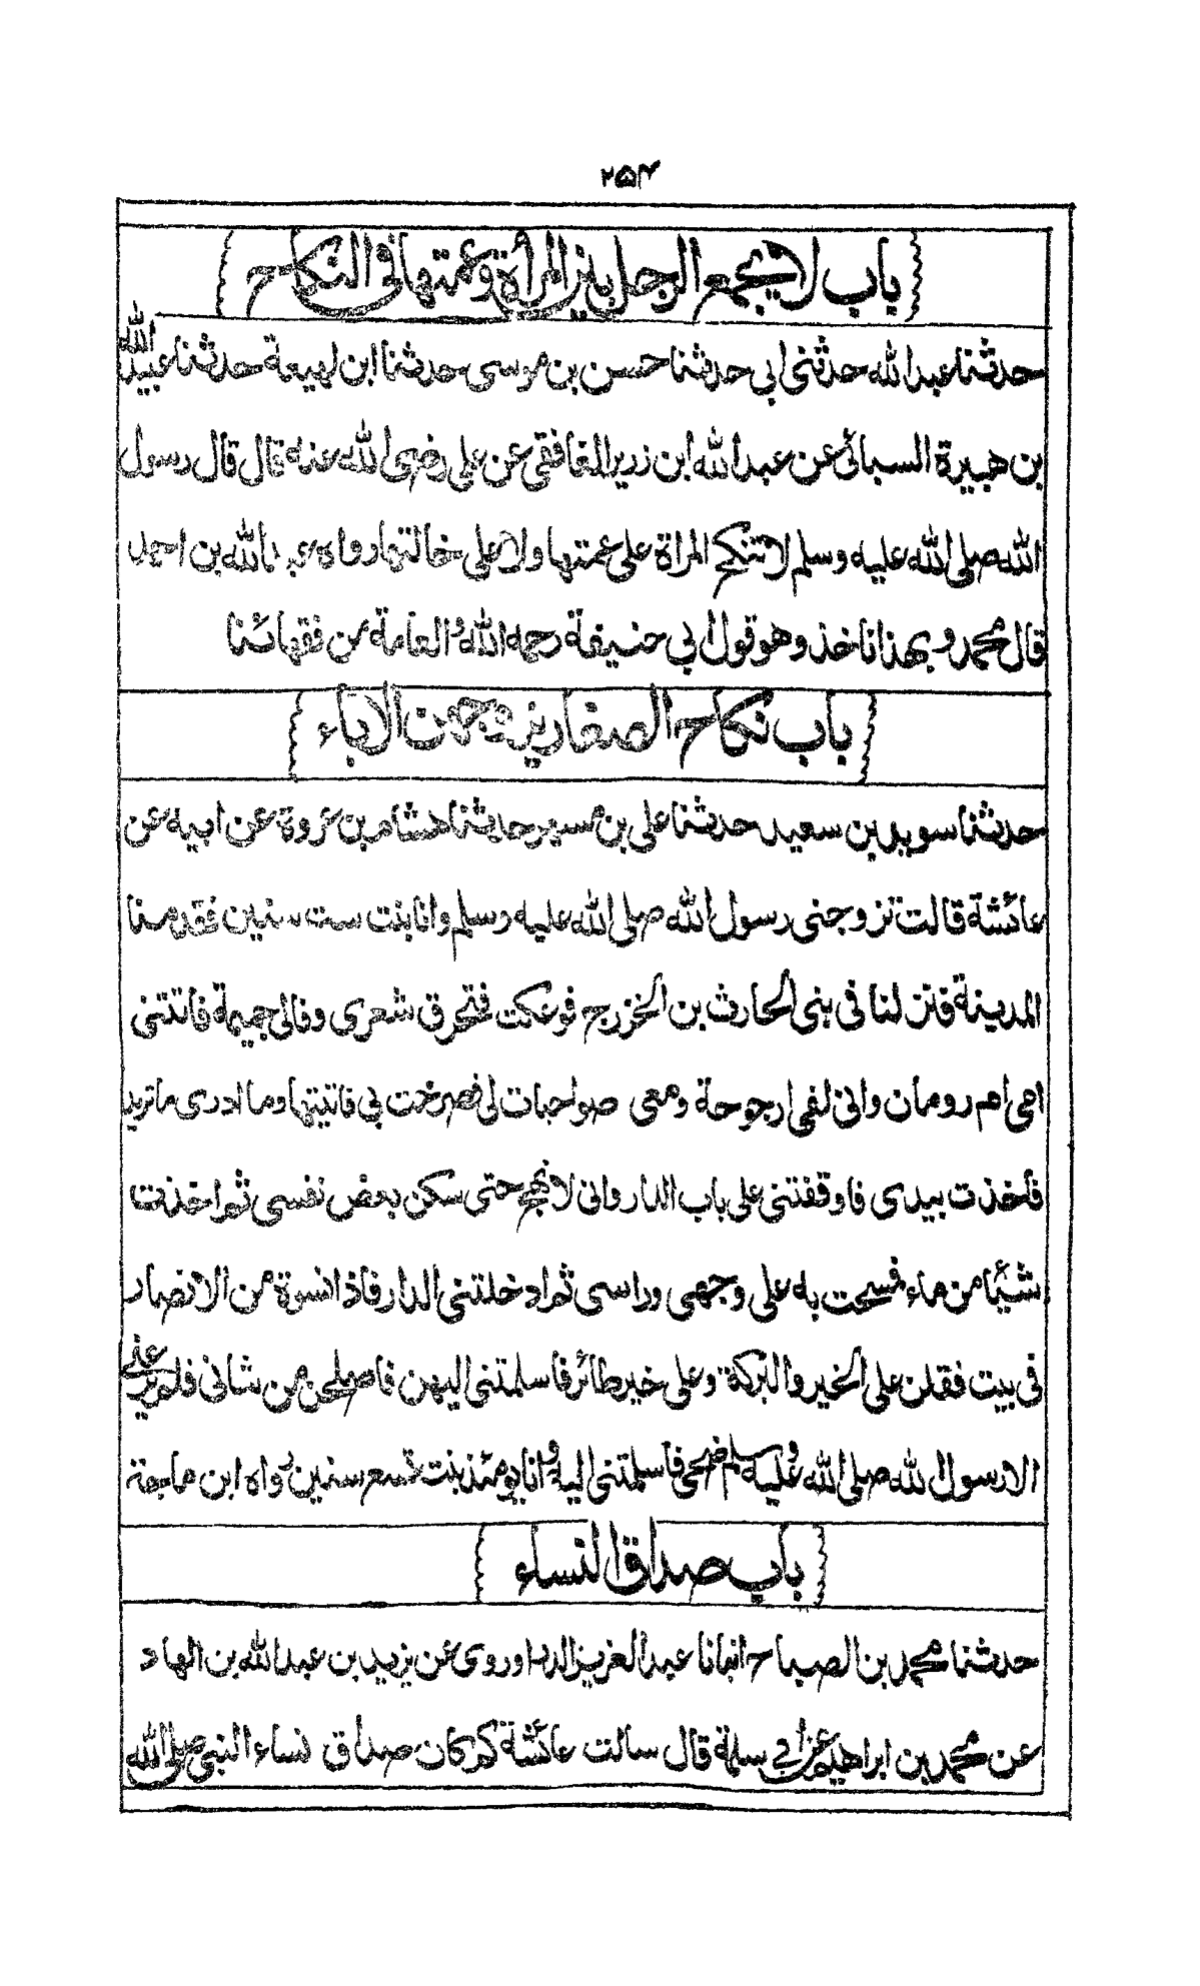 ۲۵۴
باب لا يجمع الرجل بين المرأة وعمتها في النكاح
حدثنا عبد الله حدثني ابي حدثنا حسن بن موسى حدثنا ابن لهيعة حدثنا عبد الله
بن هبيرة السبائي عن عبد الله ابن زرير الغافقي عن علي رضي الله عنه قال قال رسول
الله صلى الله عليه وسلم لا تنكح المراة على عمتها ولا على خالتها رواه عبد الله بن احمد
قال محمد وبهذا ناخذ وهو قول ابي حنيفة رحمه الله والعامة من فقهائنا
باب نكاح الصغار يزوجهن الاباء
حدثنا سويد بن سعيد حدثنا علي بن مسهر حدثنا هشام بن عروة عن ابيه عن
عائشة قالت تزوجني رسول الله صلى الله عليه وسلم وانا بنت ست سنين فقدمنا
المدينة فنزلنا في بني الحارث بن الخزرج فوعكت فتحرق شعري وفالى جميمة فاتتني
امي ام رومان واني لفي ارجوحة ومعي صواحبات لي فصرخت بي فاتيتها وما ادري ما تريد
فاخذت بيدي فاوقفتني على باب الدار واني لانهج حتى سكن بعض نفسي ثم اخذت
شيئا من ماء فمسحت به على وجهي وراسي ثم ادخلتني الدار فاذا نسوة من الانصار
في بيت فقلن على الخير والبركة وعلى خير طائر فاسلمتني اليهن فاصلحن من شاني فلم يرعني
الا رسول الله صلى الله عليه وسلم ضحى فاسلمتني اليه وانا يومئذ بنت تسع سنين رواه ابن ماجة
باب صداق النساء
حدثنا محمد بن الصباح انبانا عبد العزيز الدراوردي عن يزيد بن عبد الله بن الهاد
عن محمد بن ابراهيم عن ابي سلمة قال سالت عائشة كم كان صداق نساء النبي صلى الله